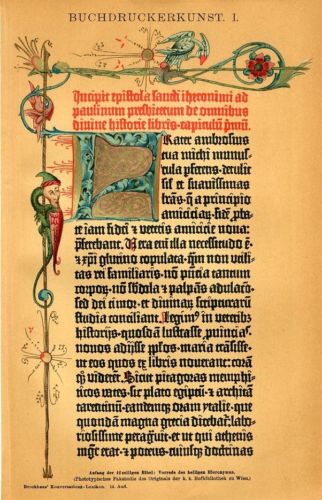 BUCHDRUCKERKUNST. I.
Incipit epistola sancti iheronimi ad
paulinum presbiterum de omnibus
divine historie libris · capitulū pmū.
Frater ambrosius
tua michi munus-
cula pferens · detulit
sil' et suavissimas
lrās · q̄ a principio
amiciciaꝝ · fidē pba-
te iam fidei ⁊ veteris amicicie nova:
pferebant. Vera eni illa necessitudo ē ·
⁊ xpi glutino copulata · qm non utili-
tas rei familiaris · nō pn̄cia tantum
corpoꝝ · nō sbdola ⁊ palpans adulaco ·
sed dei timor · et divinaꝝ scripturarū
studia conciliant. Legim' in veterib'
historijs · quosdā lustrasse puincias ·
novos adijsse pplos · maria trāsisse ·
ut eos quos ex libris noverant: corā
qꝫ viderēt. Sicut pitagoras memphi-
ticos vates · sic plato egiptū · ⁊ architā
tarentinū · eandemqꝫ oram ytalie · que
quondam magna grecia dicebat: la-
boriosissime peragvit · et ut qui athenis
mgr erat · ⁊ potens · cuiusqꝫ doctrinas
Anfang der 42zeiligen Bibel: Vorrede des heiligen Hieronymus.
(Phototypisches Faksimile des Originals der k. k. Hofbibliothek zu Wien.)
Brockhaus' Konversations-Lexikon. 14. Aufl.